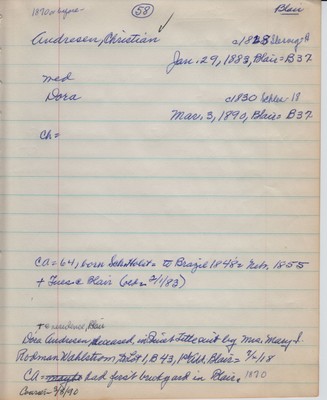 1870 or before-
58
Blair
Andresen, Christian c1828
Jan. 29, 1883, Blair= B37
med
Dora c1830 18
Mar. 3, 1890, Blair= B37
Ch=
CA= 64, born Sch.Holst= to Brazil 1848= Nebr. 1855
+ Blair (ob= 2/1/83)
+ residence, Blair
Dora Andresen, deceased, in Quiet Title suit by Mrs. Mary J.
Wahlstrom, Lot 1, B43, 1st Ad. Blair= 7/ /18
CA= maybe had first brickyard in Blair, 1870
Courier= 3/8/90